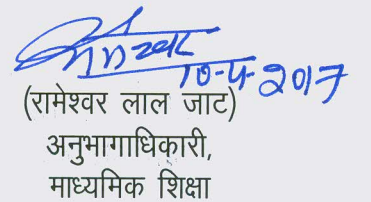 10-4-2017
(रामेश्वर लाल जाट)
अनुभागाधिकारी,
माध्यमिक शिक्षा